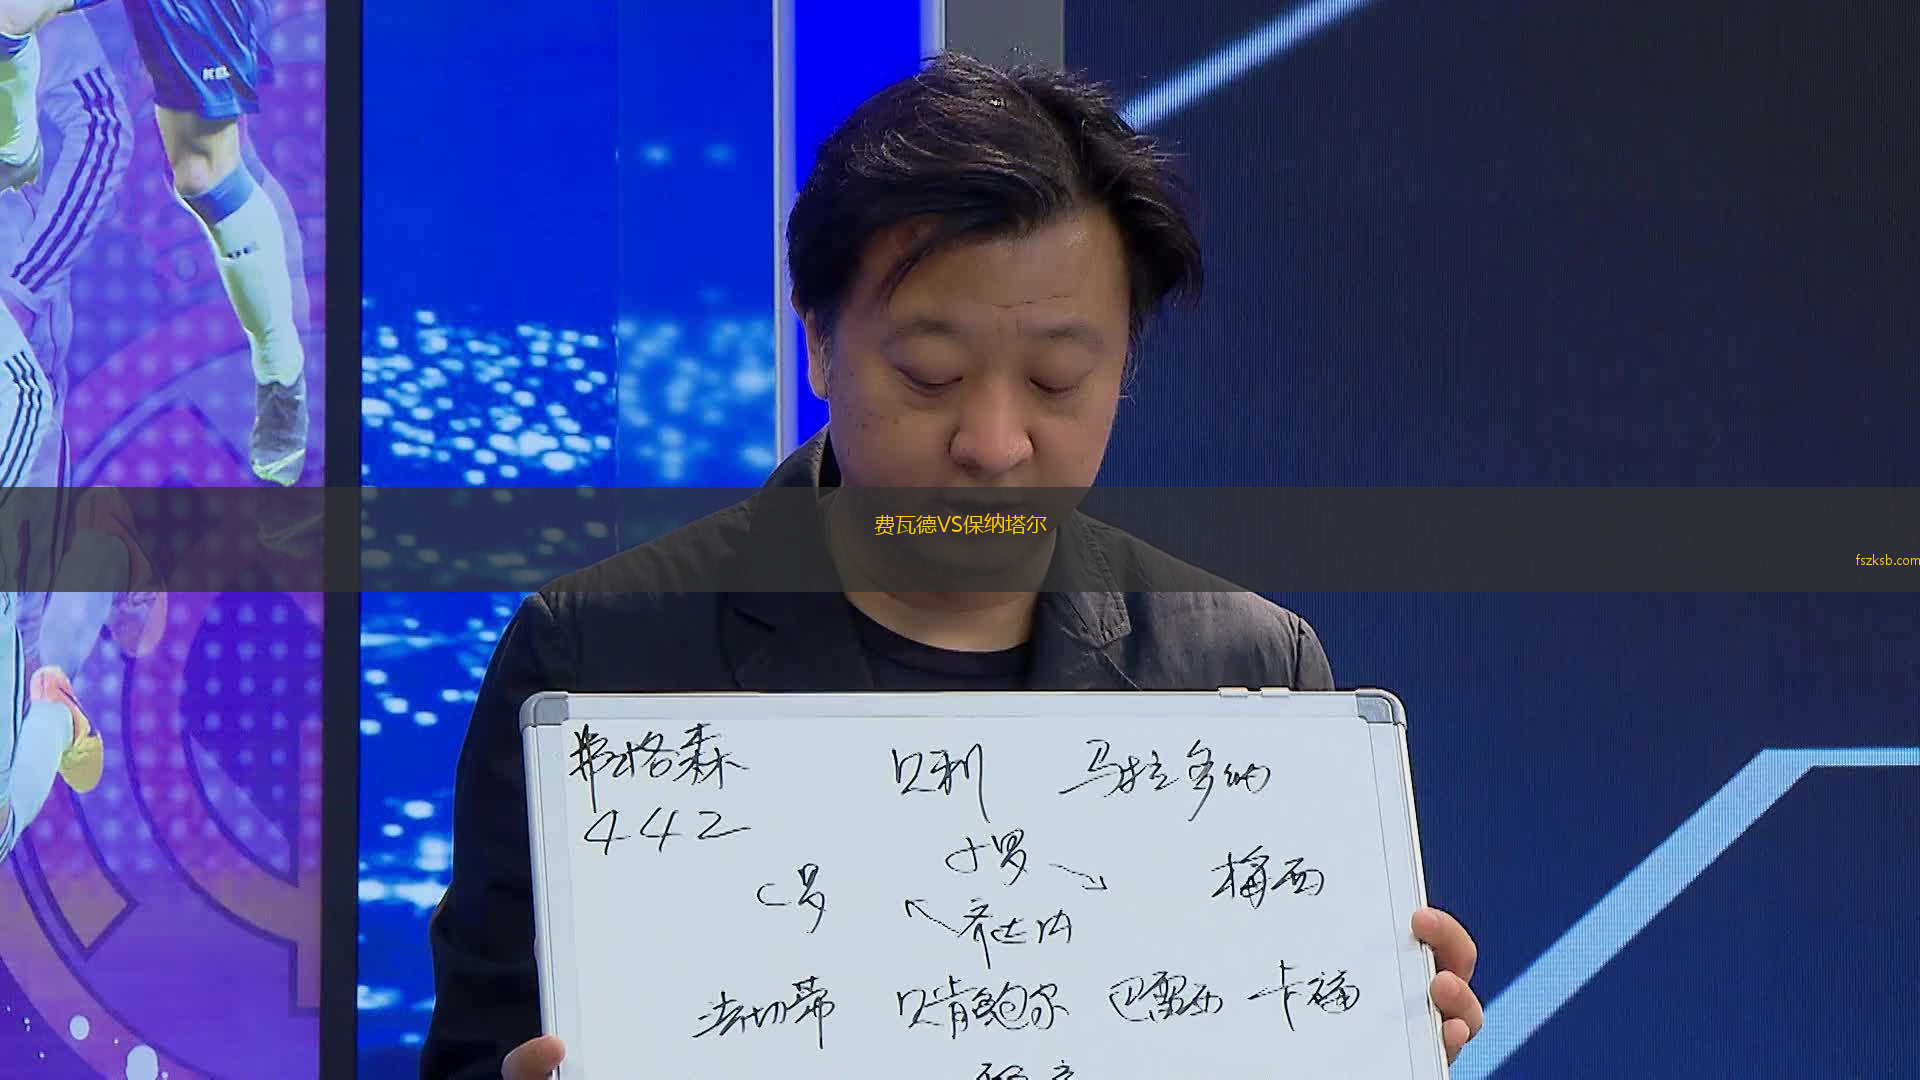 费瓦德VS保纳塔尔
fszksb.com
弗格森 贝利 马拉多纳
442
小罗
C罗 梅西
齐达内
法切蒂 贝肯鲍尔 巴雷西 卡福